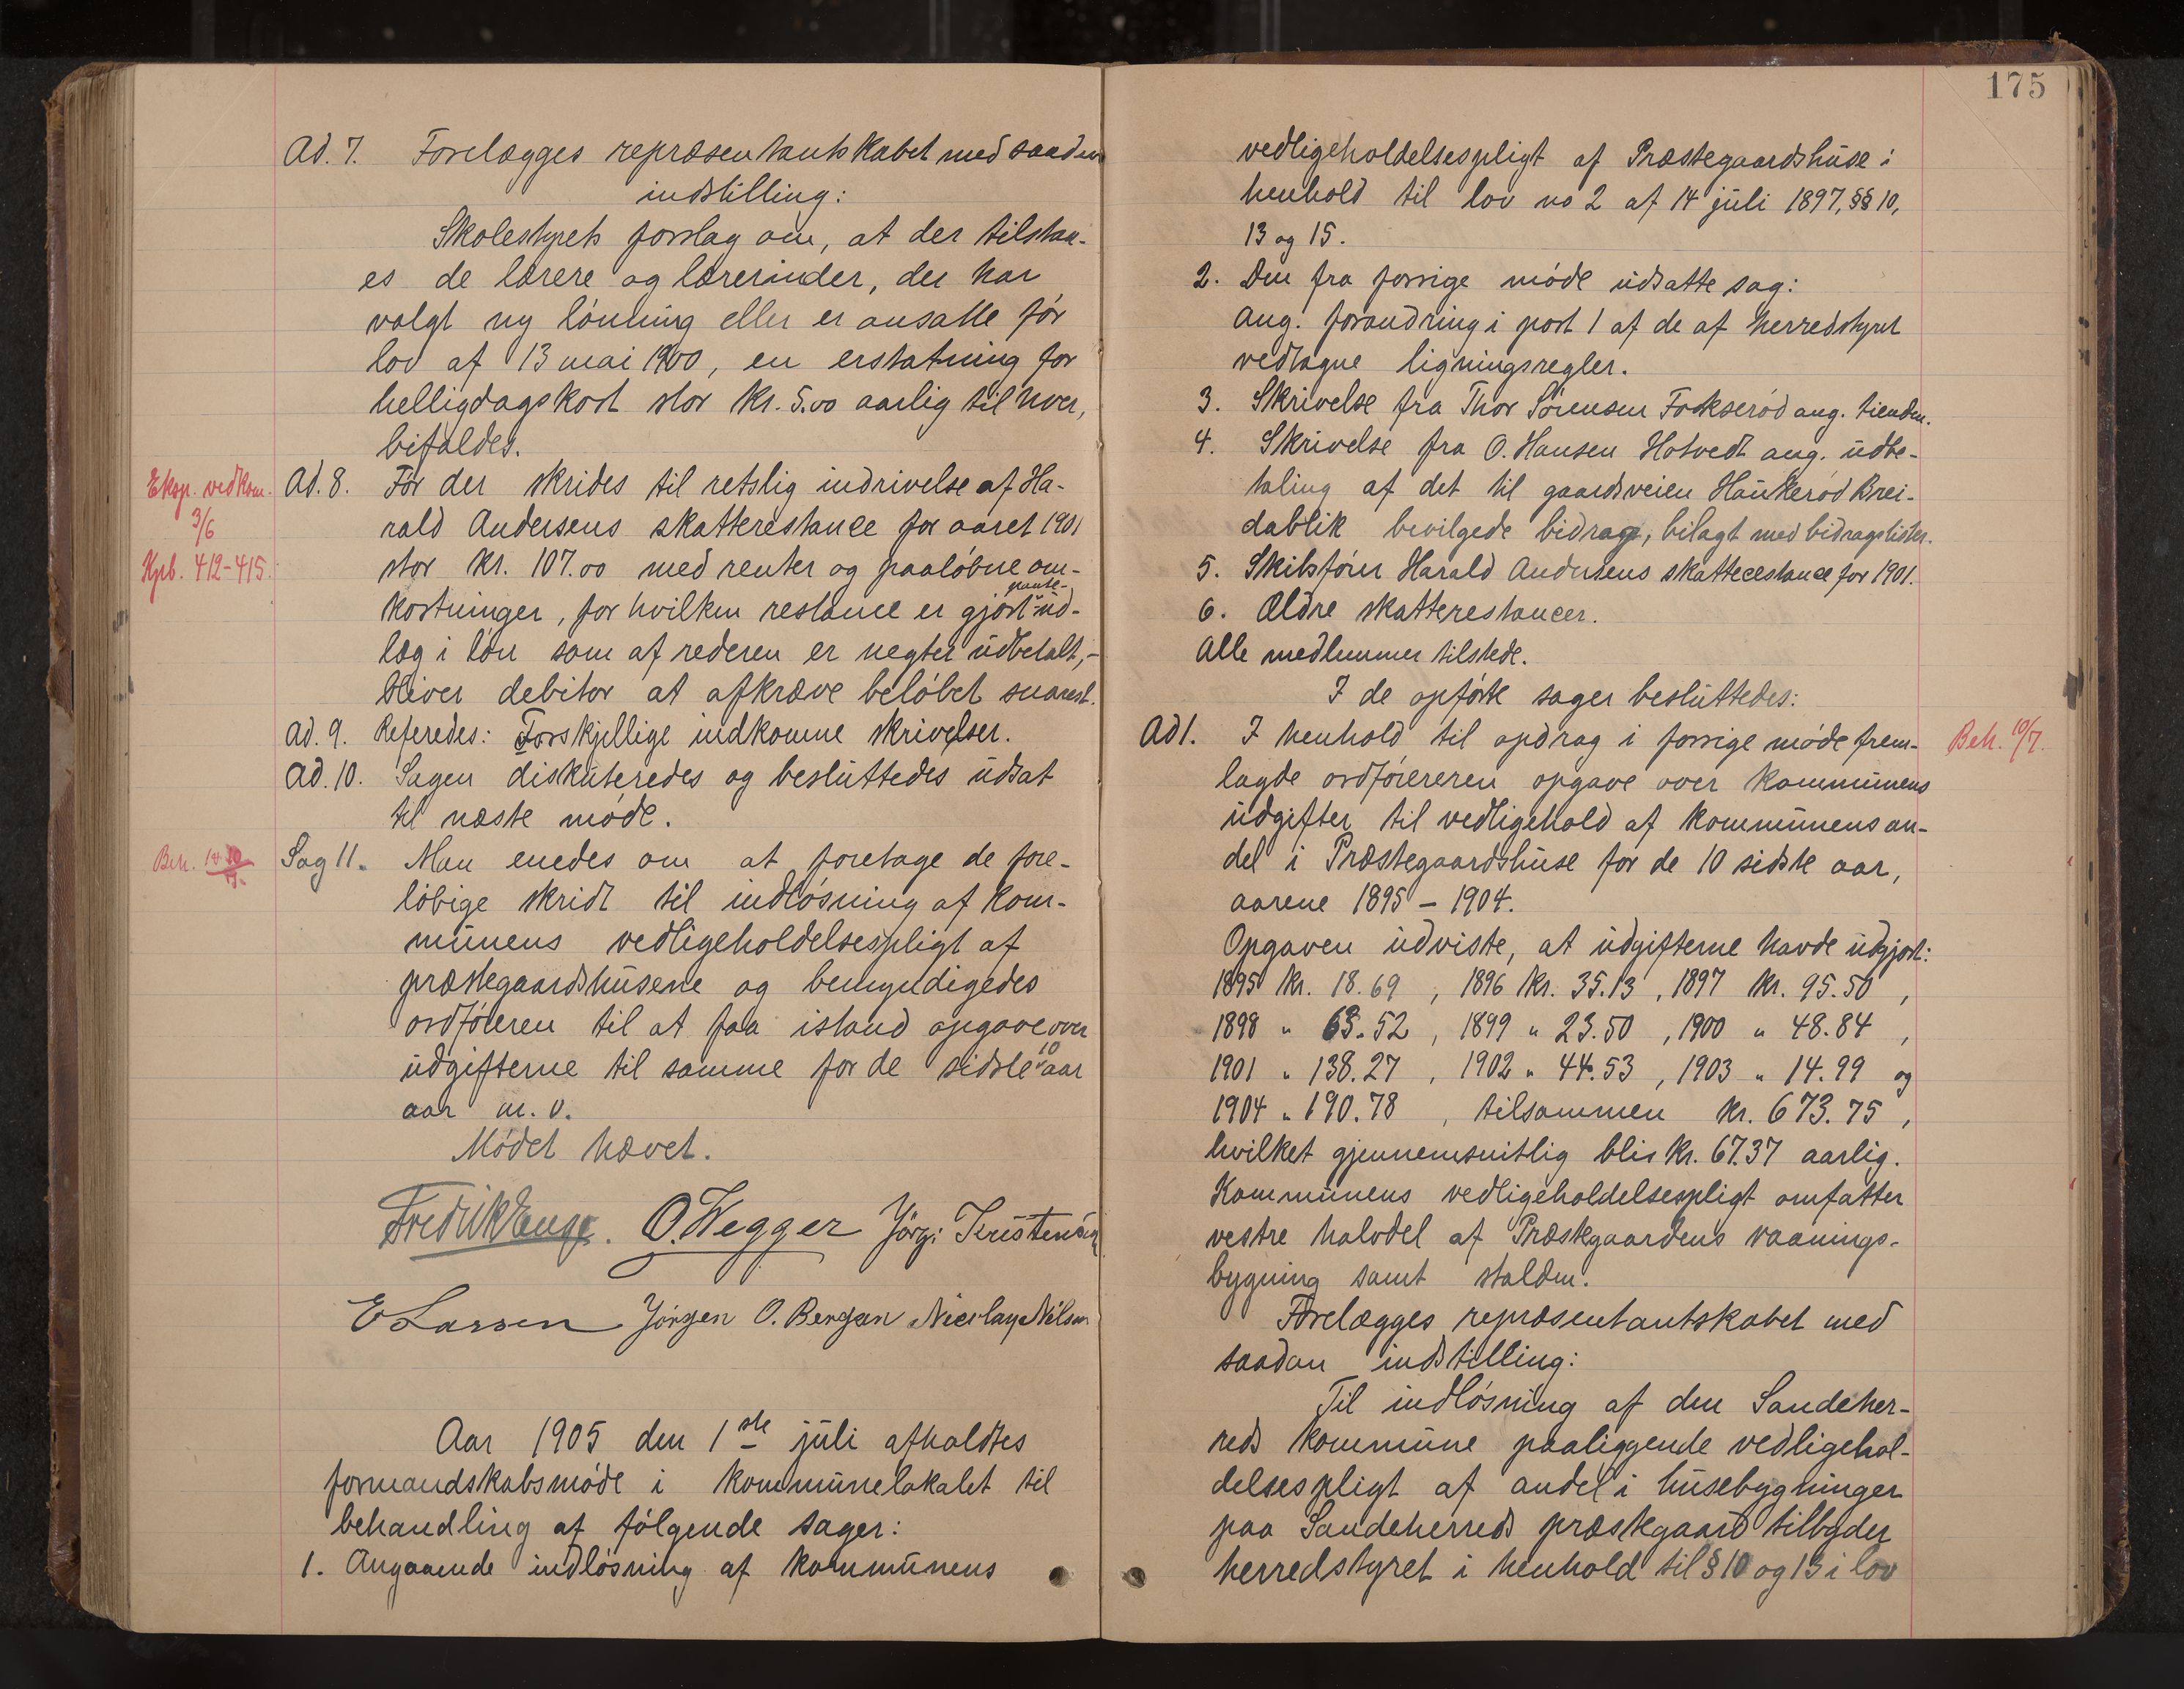 Ad. 7. Forelægges repræsentantskabet med saadan
indstilling:
Skolestyrets forslag om, at der tilstaa-
es de lærere og lærerinder, der har
valgt ny lønning eller er ansatte før
lov af 13 mai 1900, en erstatning for
helligdagskost stor kr. 5.00 aarlig til hver,
bifaldes.
Eksp. vedkom.
3/6
Kpb. 412-415.
Ad. 8. Før der skrides til retslig indrivelse af Ha-
rald Andersens skatterestance for aaret 1901
stor kr. 107.00 med renter og paaløbne om-
kostninger, for hvilken restance er gjort pante-ud-
læg i løn som af rederen er negtet udbetalt,-
bliver debitor at afkræve beløbet snarest.
Ad. 9. Referedes: Forskjellige indkomne skrivelser.
Ad. 10. Sagen diskuteredes og besluttedes udsat
til næste møde.
Beh.
Sag 11. Man enedes om at foretage de fore-
løbige skridt til indløsning af kom-
munens vedligeholdelsespligt af
præstegaardshusene og bemyndigedes
ordføreren til at faa istand opgave over
udgifterne til samme for de sidste 10 aar
aar m. v.
Mødet hævet.
Fredrik Enge. O. Wegger Jørg: Kristensen
E Larsen Jørgen O. Bergan Nicolay Nilsen
Aar 1905 den 1ste juli afholdtes
formandskabsmøde i kommunelokalet til
behandling af følgende sager:
1. Angaaende indløsning af kommunens
175
vedligeholdelsespligt af Præstegaardshuse i
henhold til lov no 2 af 14 juli 1897, §§ 10,
13 og 15.
2. Den fra forrige møde udsatte sag:
ang. forandring i post 1 af de af herredstyret
vedtagne ligningsregler.
3. Skrivelse fra Thor Sørensen Fokserød ang. tienden.
4. Skrivelse fra O. Hansen Hotvedt ang. udbe-
taling af det til gaardsveien Haukerød Brei-
dablik bevilgede bidrag, bilagt med bidragslister.
5. Skibsfører Harald Andersens skatterestance for 1901.
6. Ældre skatterestancer.
Alle medlemmer tilstede.
I de opførte sager besluttedes:
Ad 1. I henhold til opdrag i forrige møde frem-
Beh. 10/7.
lagde ordføreren opgave over kommunens
udgifter til vedligehold af kommunens an-
del i Præstegaardshuse for de 10 sidste aar,
aarene 1895 - 1904.
Opgaven udviste, at udgifterne havde udgjort:
1895 kr. 18.69, 1896 kr. 35.13, 1897 kr. 95.50,
1898 " 63.52, 1899 " 23.50, 1900 " 48.84,
1901 " 138.27, 1902 " 44.53, 1903 " 14.99 og
1904 " 190.78, tilsammen kr. 673.75,
hvilket gjennemsnitlig blir kr. 67.37 aarlig.
Kommunens vedligeholdelsespligt omfatter
vestre halvdel af Præstegaardens vaanings-
bygning samt stalden.
Forelægges repræsentantskabet med
saadan indstilling:
Til indløsning af den Sandeher-
reds kommune paaliggende vedligehol-
delsespligt af andel i husebygninger
paa Sandeherreds præstegaard tilbyder
herredstyret i henhold til § 10 og 13 i lov